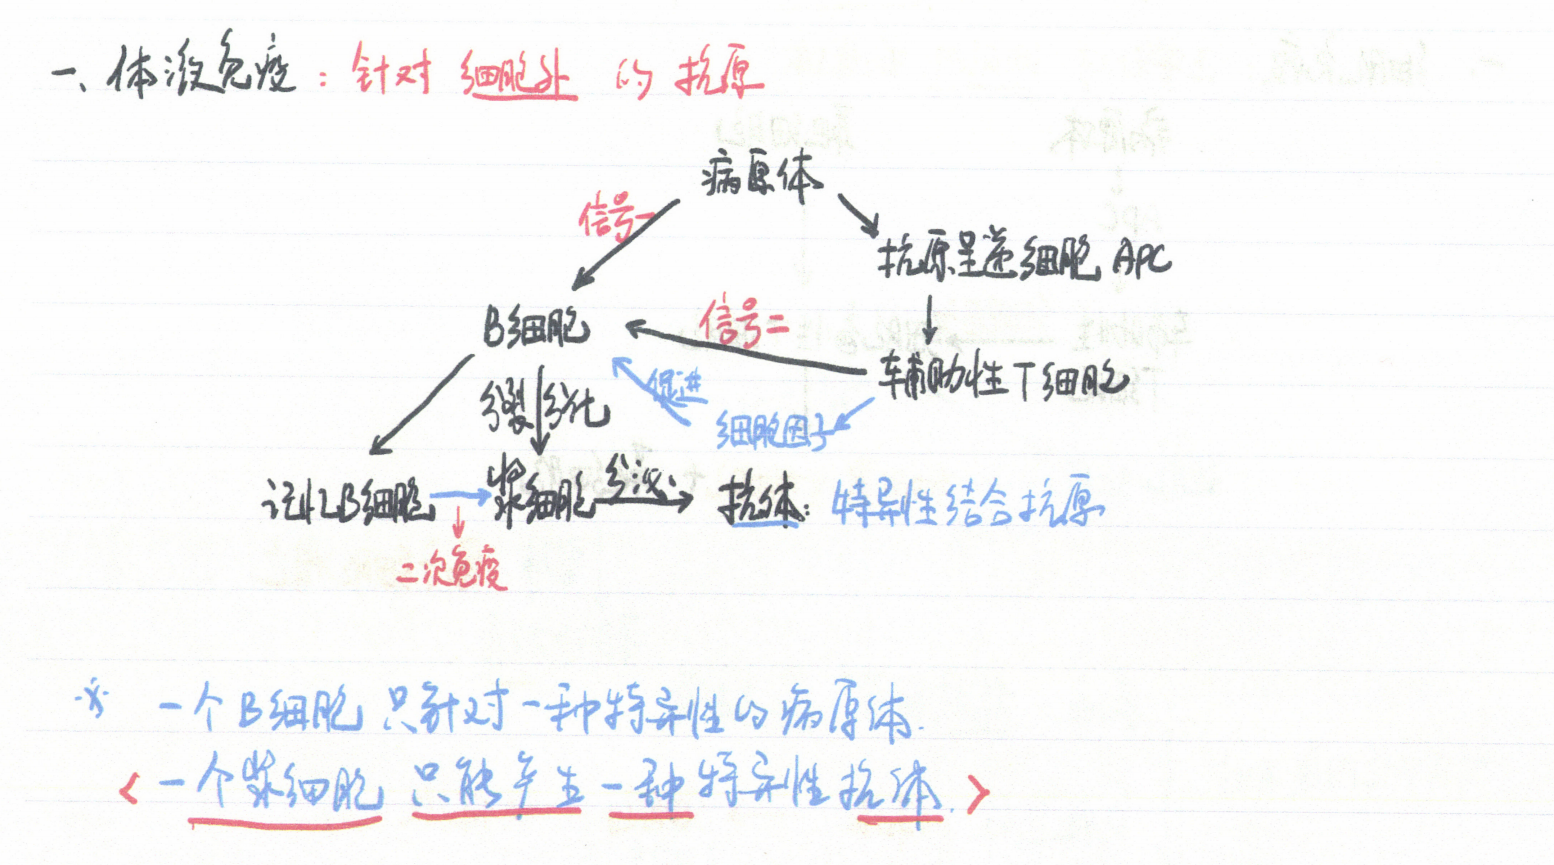 一、体液免疫：针对 细胞外 的抗原
病原体
信号一
抗原呈递细胞 APC
B细胞
信号二
辅助性T细胞
促进
细胞因子
分裂 分化
记忆B细胞
浆细胞
分泌
抗体：特异性结合抗原
二次免疫
※ 一个B细胞 只针对一种特异性的病原体.
<一个浆细胞 只能产生一种特异性抗体.>